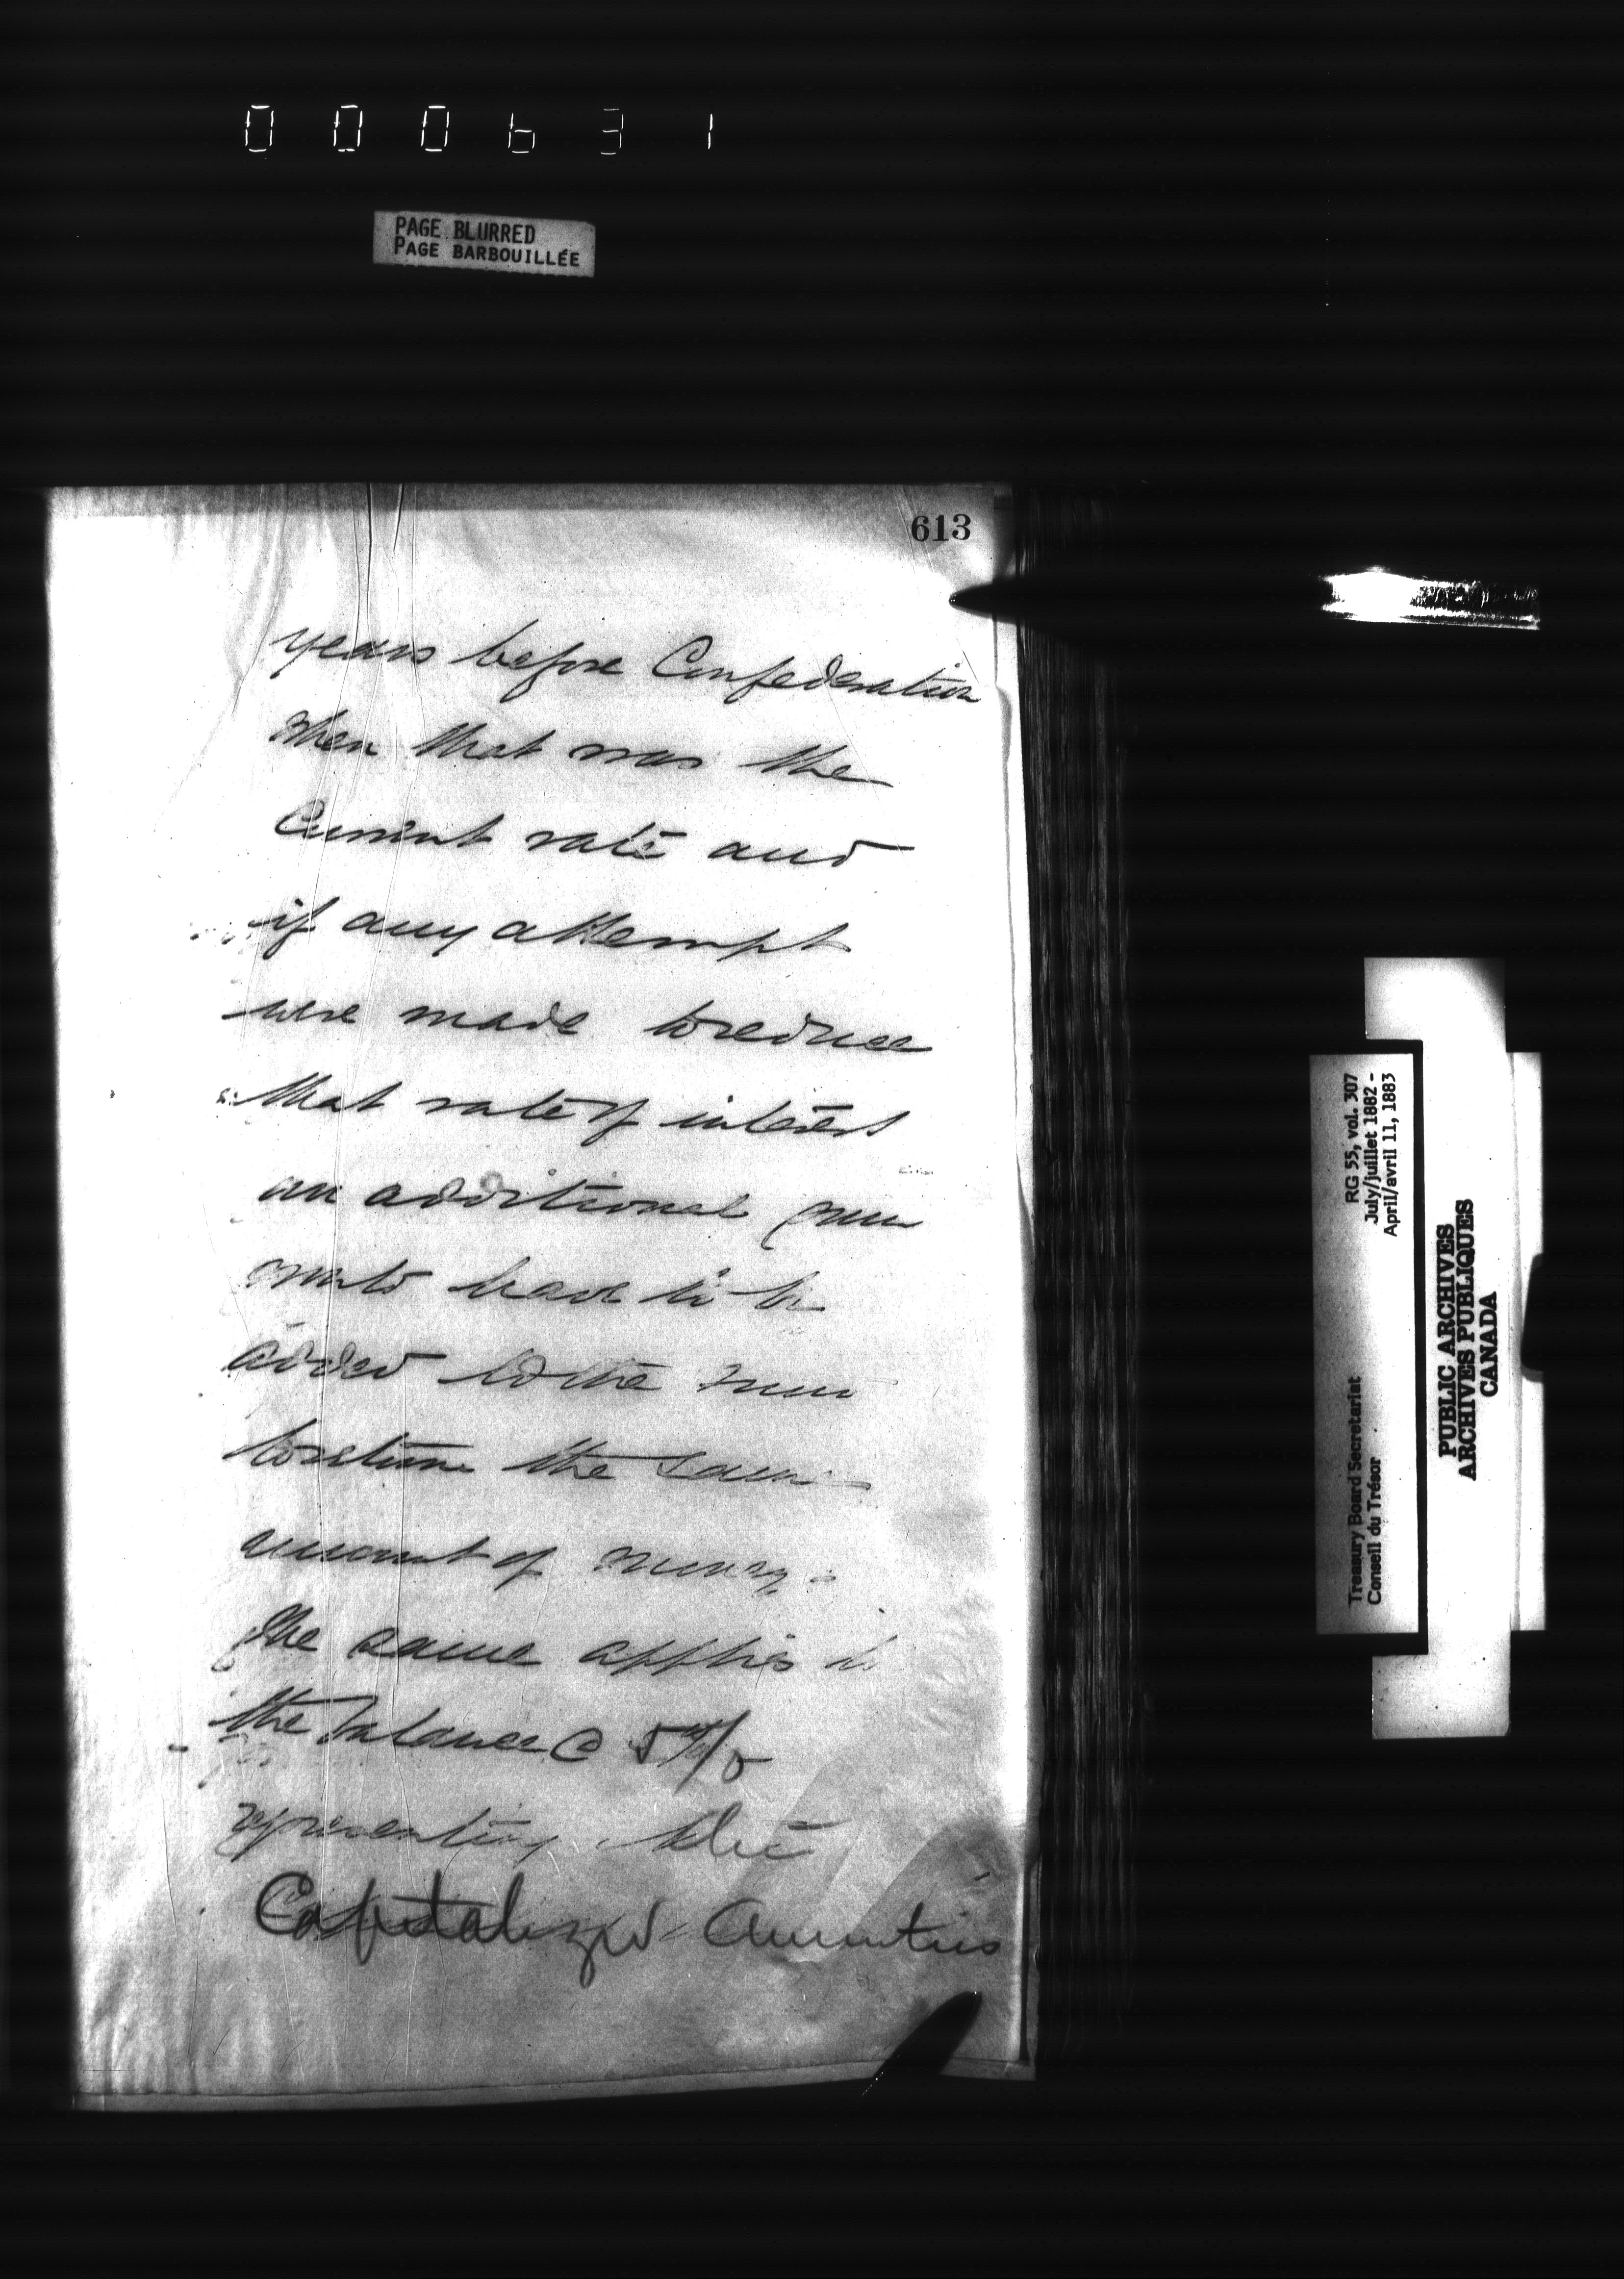 000631
PAGE BLURRED
PAGE BARBOUILLÉE
613
years before Confederation
when that was the
Current rate and
if any attempt
were made to reduce
that rate of interest
an additional sum
would have to be
added to the sum
to return the same
amount of money.
The same applies to
the balance @ 5 %
representing the
Capitalized Annuities
RG 55, vol. 307
July/juillet 1882 -
April/avril 11, 1883
Treasury Board Secretariat
Conseil du Trésor
PUBLIC ARCHIVES
ARCHIVES PUBLIQUES
CANADA